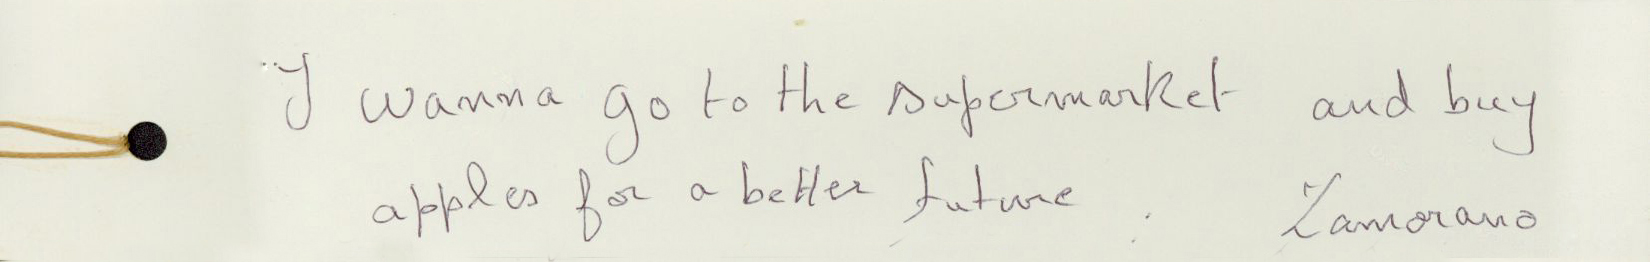 "I wanna go to the supermarket and buy
apples for a better future.
Zamorano